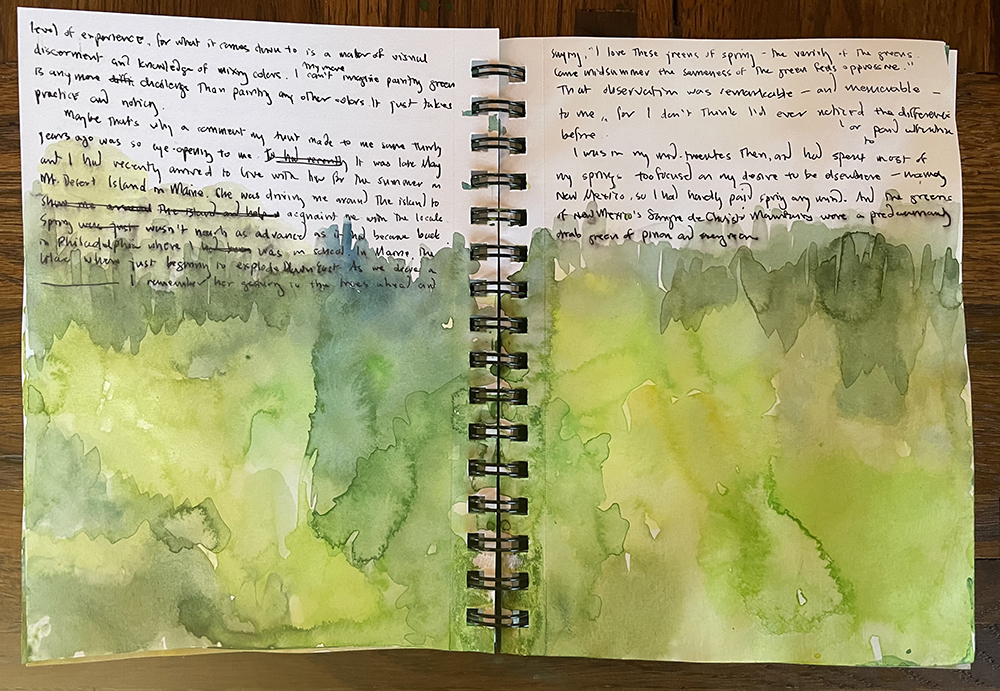 level of experience, for what it comes down to is a matter of visual
discernment and knowledge of mixing colors. I can't imagine painting green
any more
is any more challenge than painting any other colors. It just takes
practice and noticing.
Maybe that's why a comment my aunt made to me some thirty
years ago was so eye-opening to me. It was late May
and I had recently arrived to live with her for the summer on
Mt. Desert Island in Maine. She was driving me around the island to
show me around the island and help acquaint me with the locale
Spring was just wasn't nearly as advanced as it had become back
in Philadelphia where I had been was in school. In Maine, the
lilacs where just beginning to explode down east. As we drove a
I remember her gesturing to the trees ahead and
saying, "I love these greens of spring – the variety of the greens.
Come midsummer the sameness of the green feels oppressive."
That observation was remarkable – and memorable –
to me, for I don't think I'd ever noticed the differences
or paid attention
to
before.
I was in my mid-twenties then, and had spent most of
my springs too focused on my desire to be elsewhere – namely
New Mexico, so I had hardly paid spring any mind. And the greens
of New Mexico's Sangre de Christo Mountains were a predominantly
drab green of pinon and evergreen